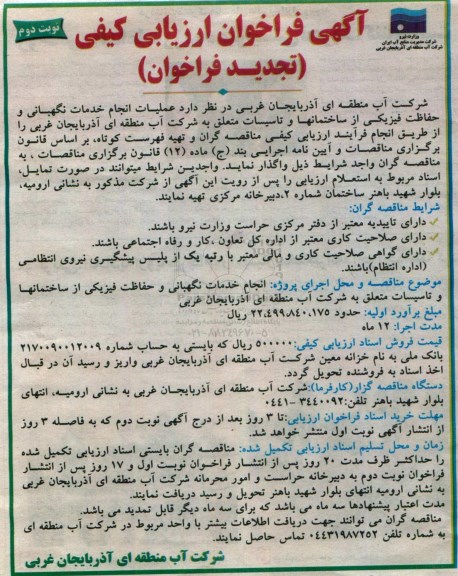 نوبت دوم
وزارت نیرو
شرکت مدیریت منابع آب ایران
شرکت آب منطقه ای آذربایجان غربی
آگهی فراخوان ارزیابی کیفی
(تجدید فراخوان)
شرکت آب منطقـه ای آذربایجـان غربـی در نظر دارد عملیـات انجام خدمات نگهبـانی و
حفاظت فیزیکـی از ساختمانهـا و تاسیـات متعلق به شرکت آب منطقه ای آذربایجان غربی را
از طریـق انجام فرآینـد ارزیابی کیفـی مناقصـه گران و تهیه فهرسـت کوتاه، بر اساس قانون
برگزاری مناقصات و آیین نامه اجرایـی بند (ج) ماده (۱۲) قانـون برگزاری مناقصـات ، به
مناقصـه گران واجد شـرایط ذیل واگذار نمایـد. واجدیـن شرایط میتوانند در صورت تمایل،
اسناد مربوط به استعـلام ارزیابی را پس از رویت این آگهی از شرکت مذکور به نشانی ارومیه،
بلوار شهید باهنر ساختمان شماره ۲،دبیرخانه مرکزی تهیه نمایند.
شرایط مناقصه گران:
✓ دارای تاییدیه معتبر از دفتر مرکزی حراست وزارت نیرو باشند.
✓ دارای صلاحیت کاری معتبر از اداره کل تعاون ،کار و رفاه اجتماعی باشند.
✓ دارای گواهی صلاحیت کاری و مالی معتبر با رتبه یک از پلیس پیشگیری نیروی انتظامـی
(اداره انتظام)باشند.
موضوع مناقصه و محل اجرای پروژه: انجام خدمات نگهبانی و حفاظت فیزیکی از ساختمانهـا
و تاسیسات متعلق به شرکت آب منطقه ای آذربایجان غربی
مبلغ برآورد اولیه: حدود ۲۲،۴۹۹،۸۴۰،۱۷۵ ریال
مدت اجرا: ۱۲ ماه
قیمت فروش اسناد ارزیابی کیفی: ۵۰۰۰۰۰ ریال که بایستی به حساب شماره ۲۱۷۰۰۹۰۰۱۲۰۰۹
بانک ملی به نام خزانه معین شرکت آب منطقه ای آذربایجان غربی واریز و رسید آن در قبـال
اخذ اسناد به فروشنده تحویل گردد.
دستگاه مناقصه گزار(کارفرما):شرکت آب منطقه ای آذربایجـان غربی به نشانی ارومیـه، انتهای
بلوار شهید باهنر تلفن:۳۴۴۰۰۹۲ -۰۴۴۱
مهلت خرید اسناد فراخوان ارزیابی:تا ۳ روز بعد از درج آگهی نوبت دوم که به فاصلـه ۳ روز
از انتشار آگهی نوبت اول منتشر خواهد شد.
زمان و محل تسلیم اسناد ارزیابی تکمیل شده: مناقصـه گران بایستی اسناد ارزیابی تکمیل شده
را حداکثـر ظرف مدت ۲۰ روز پس از انتشـار فراخـوان نوبـت اول و ۱۷ روز پـس از انتشـار
فراخوان نوبت دوم به دبیرخانه حراسـت و امور محرمانه شرکت آب منطقه ای آذربایجان غربی
به نشانی ارومیه انتهای بلوار شهید باهنر تحویل و رسید دریافت نمایند.
مدت اعتبار پیشنهادها سه ماه می باشد که برای سه ماه دیگر قابل تمدید می باشد.
مناقصه گران می توانند جهت دریافت اطلاعات بیشتر با واحد مربوط در شرکت آب منطقه ای
به شماره تلفن ۰۴۴۳۱۹۸۷۲۵۲ تماس حاصل نمایند.
شرکت آب منطقه ای آذربایجان غربی